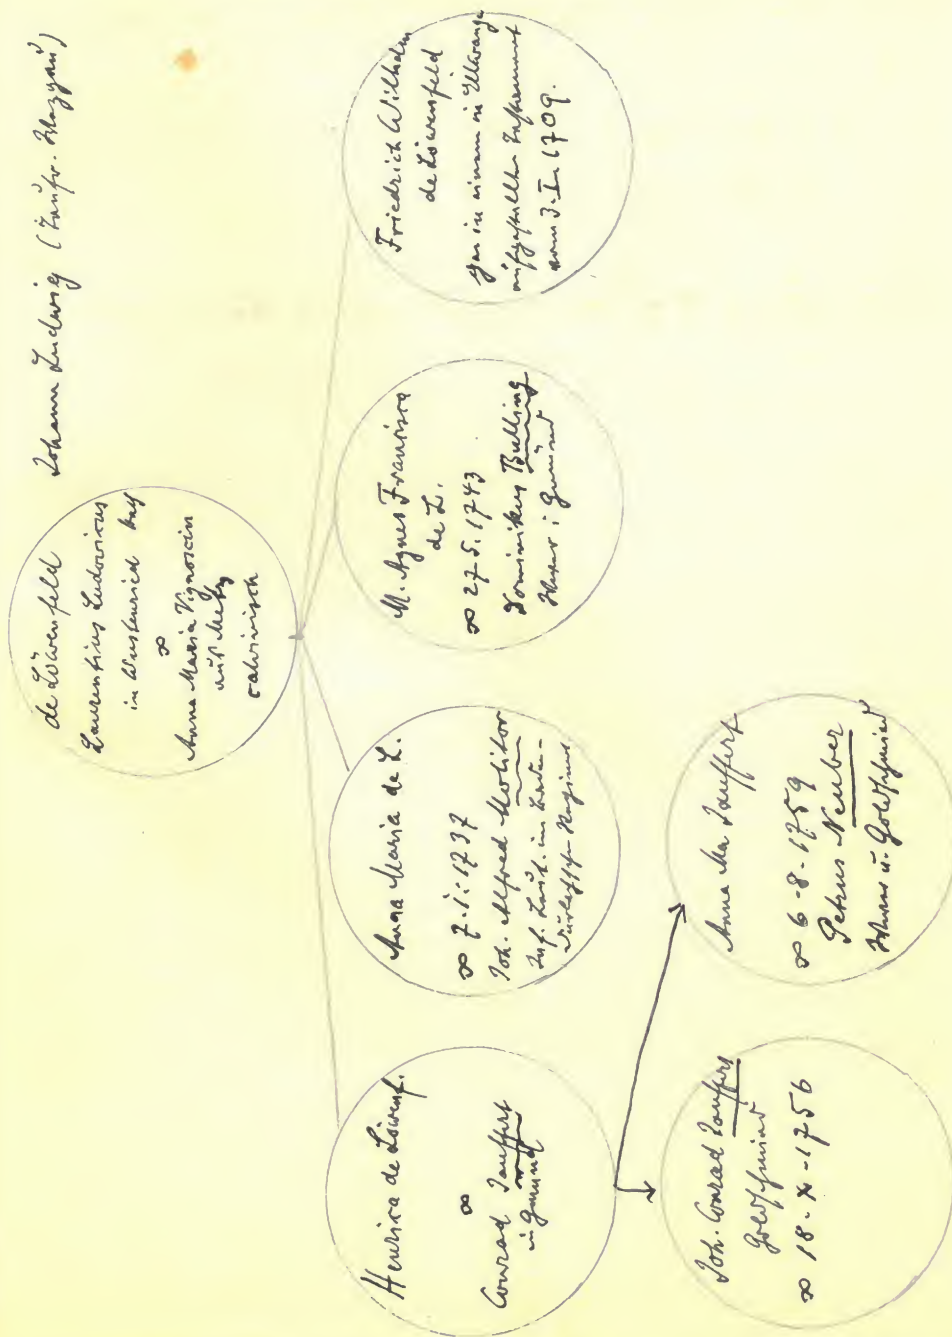 Johann Ludwig
de Löwenfeld
Laurentius Ludovicus
in Wusterried
∞
Anna Maria Vignoscin
auß Metz
calvinisch
Henrica de Löwenf.
∞
Conrad Jauffert
in Gmünd
Anna Maria de L.
∞ 7.1.1737
Joh. Alfred Molitor
Inf. Leut. im Baden-
Durlach'schen Regiment
M. Agnes Francisca
de L.
∞ 27.5.1743
Dominikus Bulling
i Gmünd
Friedrich Wilhelm
de Löwenfeld
in einem in
Instrument
vom 3. I. 1709.
Joh. Conrad Jauffert
Goldschmied
∞ 18-X-1756
Anna Ma Jauffert
∞ 6-8-1759
Petrus Neuber
u. Goldschmied